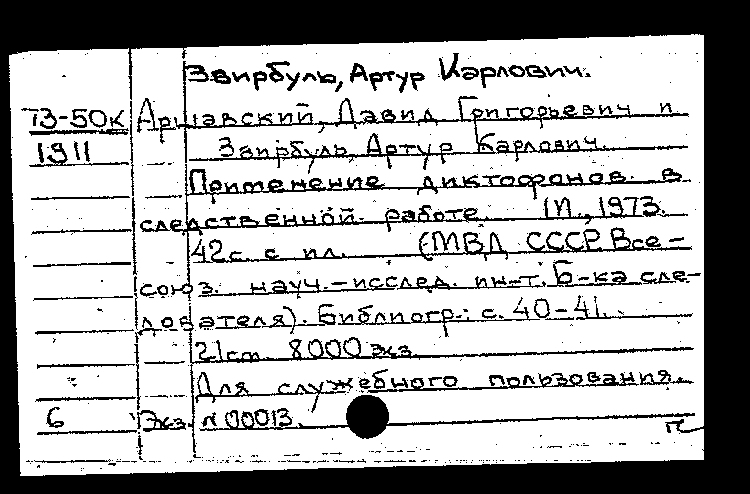 Звирбуль, Артур Карлович.
73-50к Аршавский, Давид Григорьевич и
1311 Звирбуль, Артур Карлович.
Применение диктофонов в
следственной работе. М., 1973.
42с. с ил. (МВД СССР. Все-
союз. науч.-исслед. ин-т. Б-ка сле-
дователя). Библиогр.: с. 40-41.
21см. 8000 экз.
Для служебного пользования.
6 Экз. N 00013.